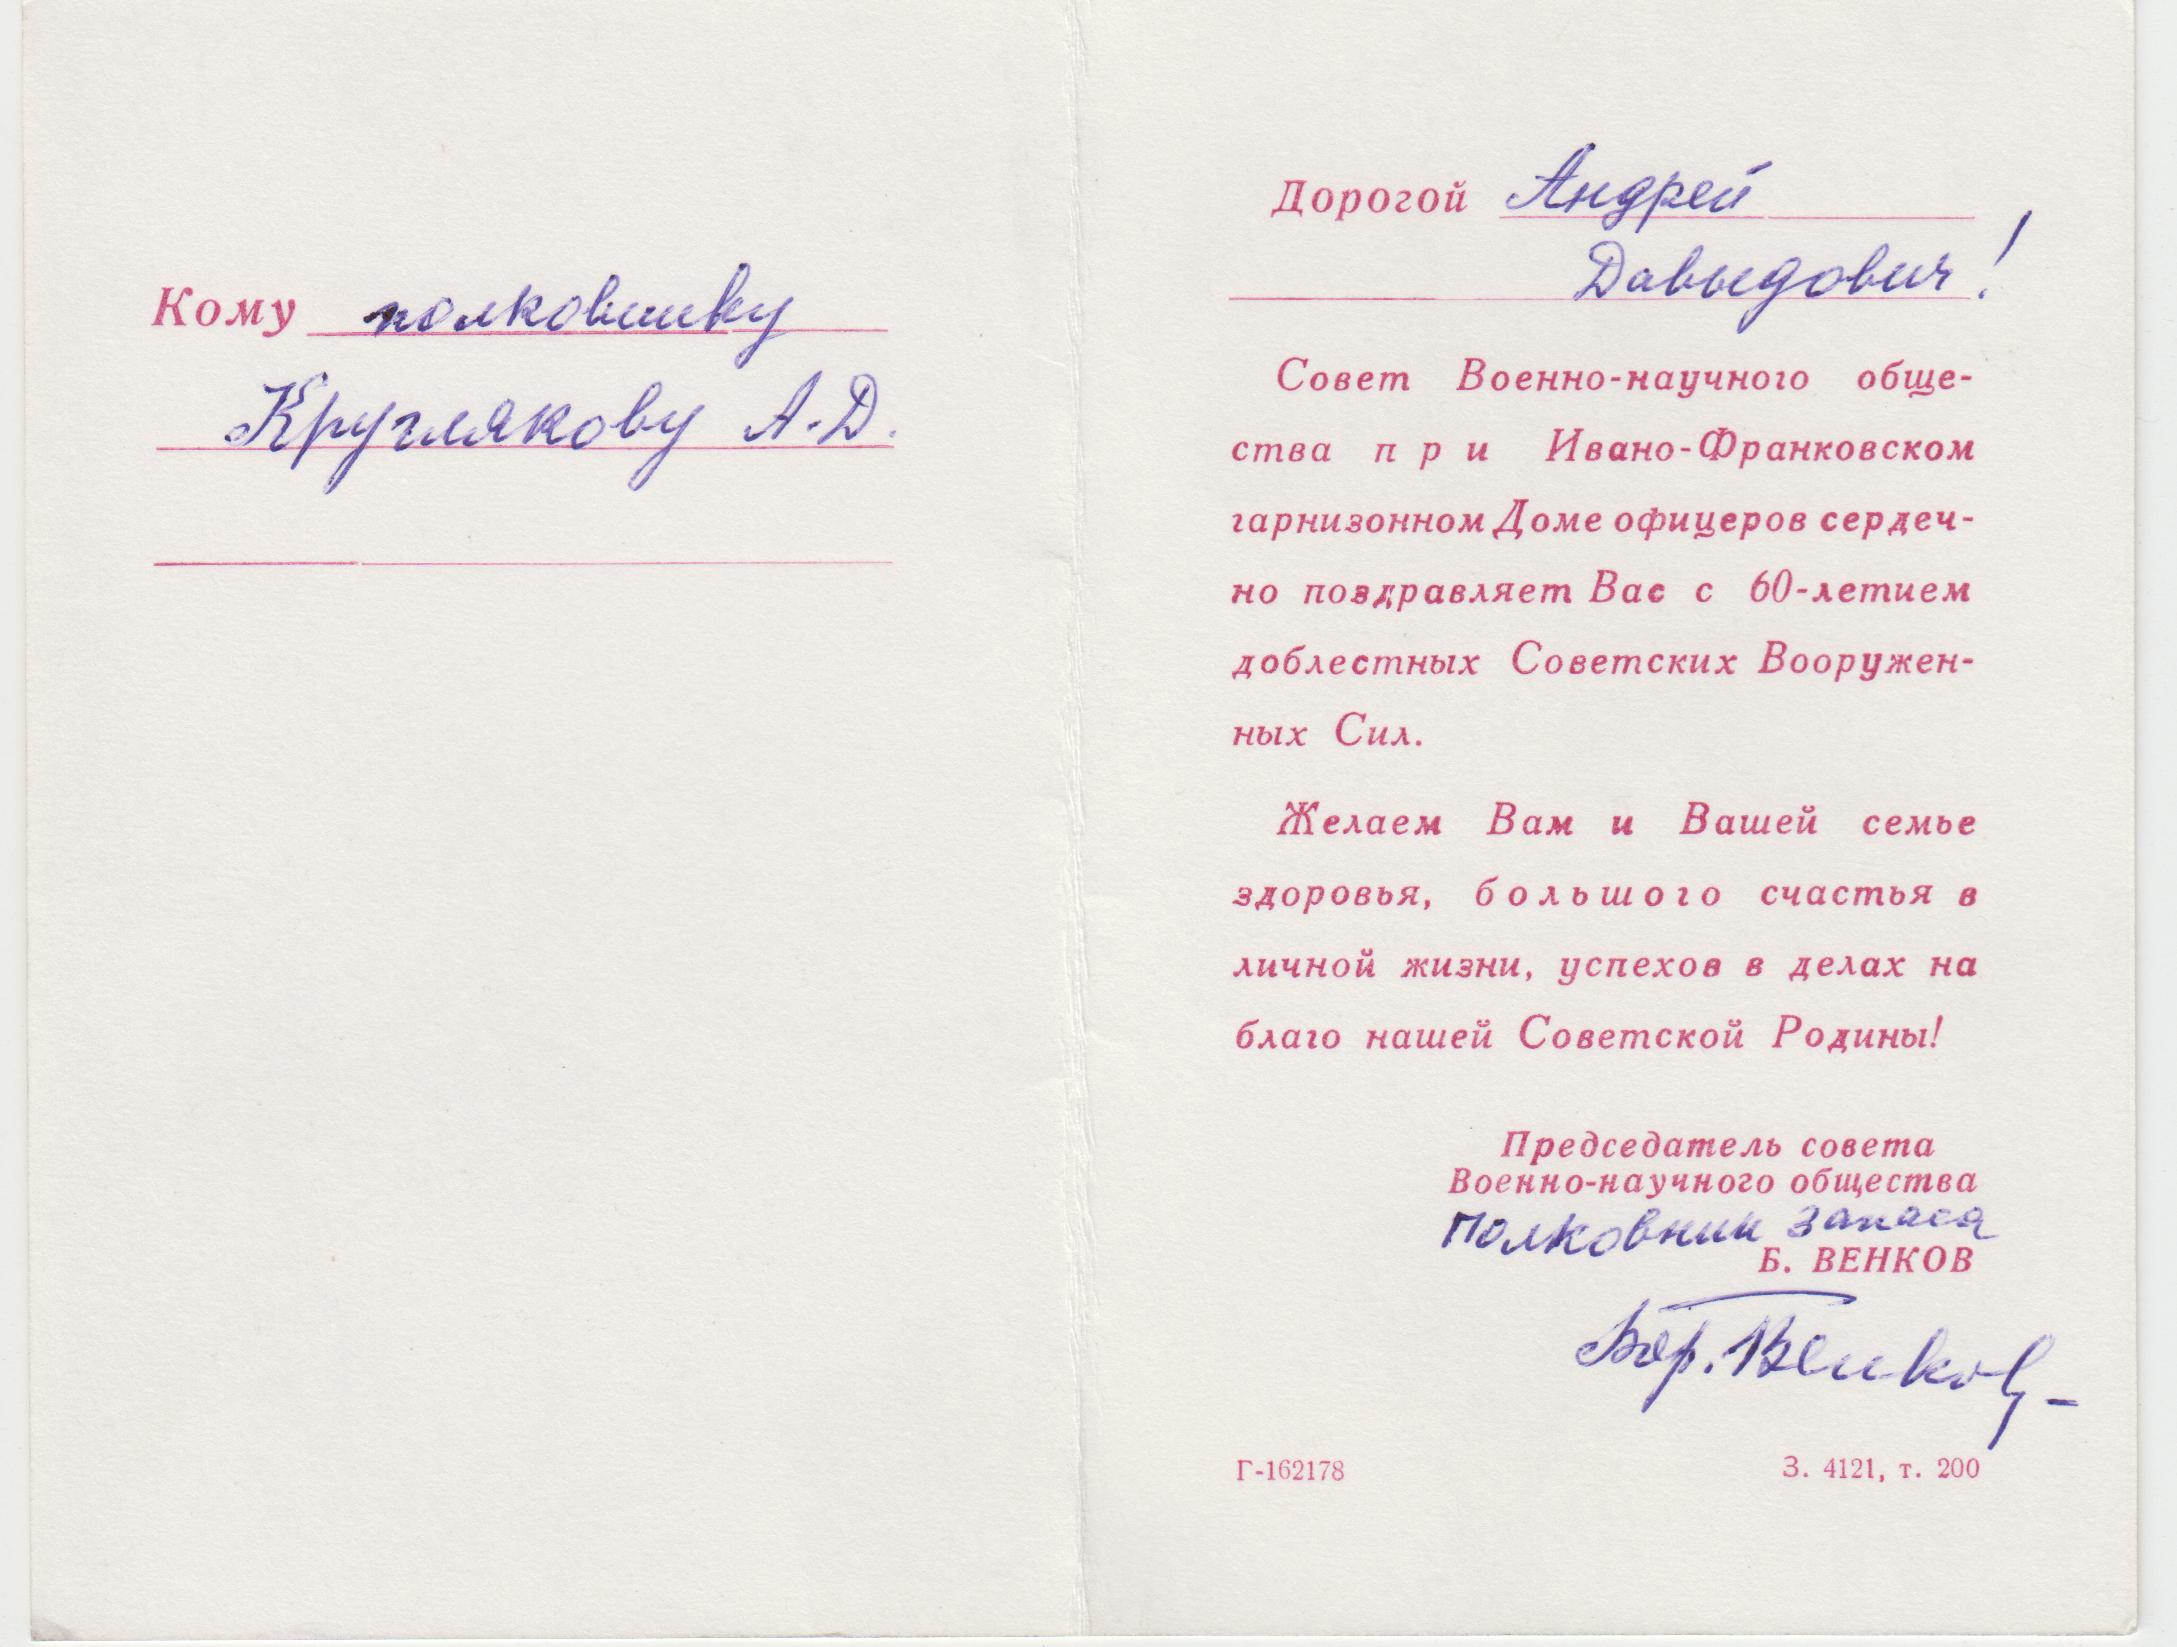 Кому полковнику
Круглякову А.Д.
Дорогой Андрей
Давыдович!
Совет Военно-научного обще-
ства при Ивано-Франковском
гарнизонном Доме офицеров сердеч-
но поздравляет Вас с 60-летием
доблестных Советских Вооружен-
ных Сил.
Желаем Вам и Вашей семье
здоровья, большого счастья в
личной жизни, успехов в делах на
благо нашей Советской Родины!
Председатель совета
Военно-научного общества
полковник запаса
Б. ВЕНКОВ
Бор. Венков
Г-162178 З. 4121, т. 200